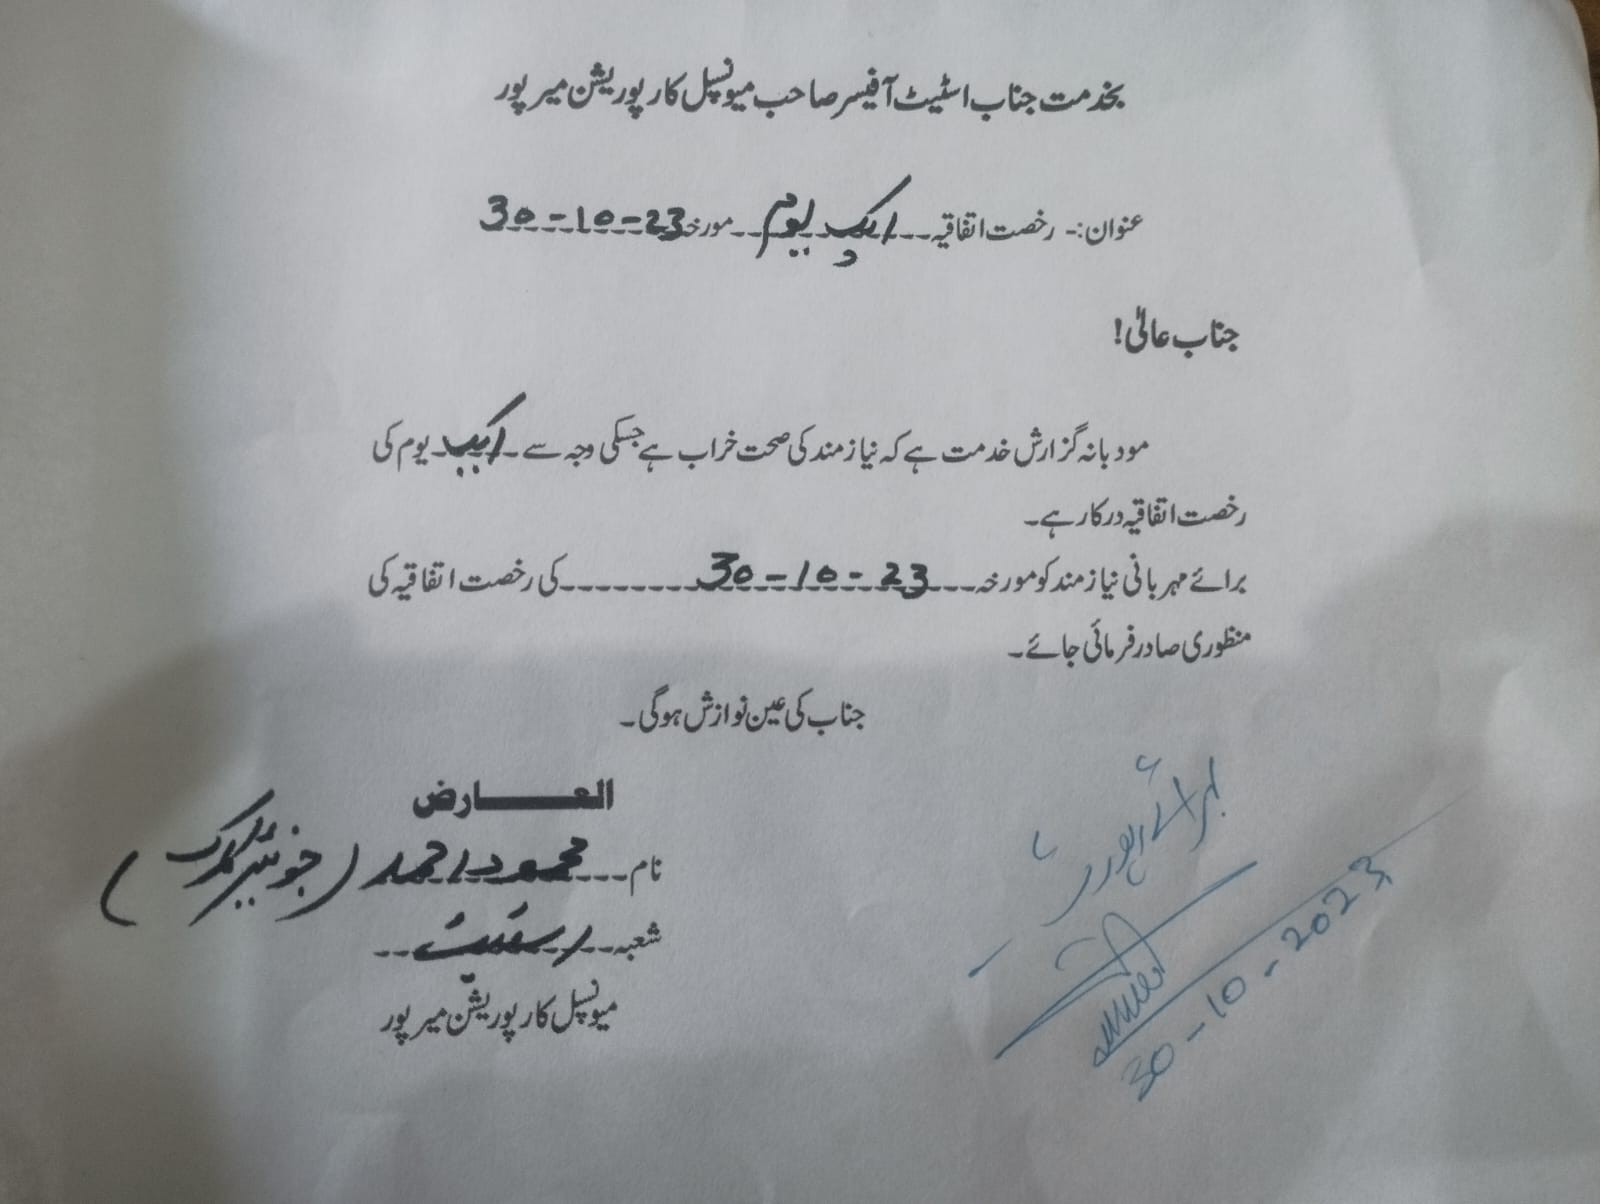 بخدمت جناب اسٹیٹ آفیسر صاحب میونسپل کارپوریشن میرپور
عنوان:- رخصت اتفاقیہ ایک یوم مورخہ 30-10-23
جناب عالیٰ!
مودبانہ گزارش خدمت ہے کہ نیازمند کی صحت خراب ہے جسکی وجہ سے ایک یوم کی
رخصت اتفاقیہ درکار ہے۔
برائے مہربانی نیازمند کو مورخہ 30-10-23 کی رخصت اتفاقیہ کی
منظوری صادر فرمائی جائے۔
جناب کی عین نوازش ہوگی۔
العارض
نام محمود احمد (جونیئر کلرک)
شعبہ اسٹیٹ
میونسپل کارپوریشن میرپور
برائے رپورٹ
30-10-2023